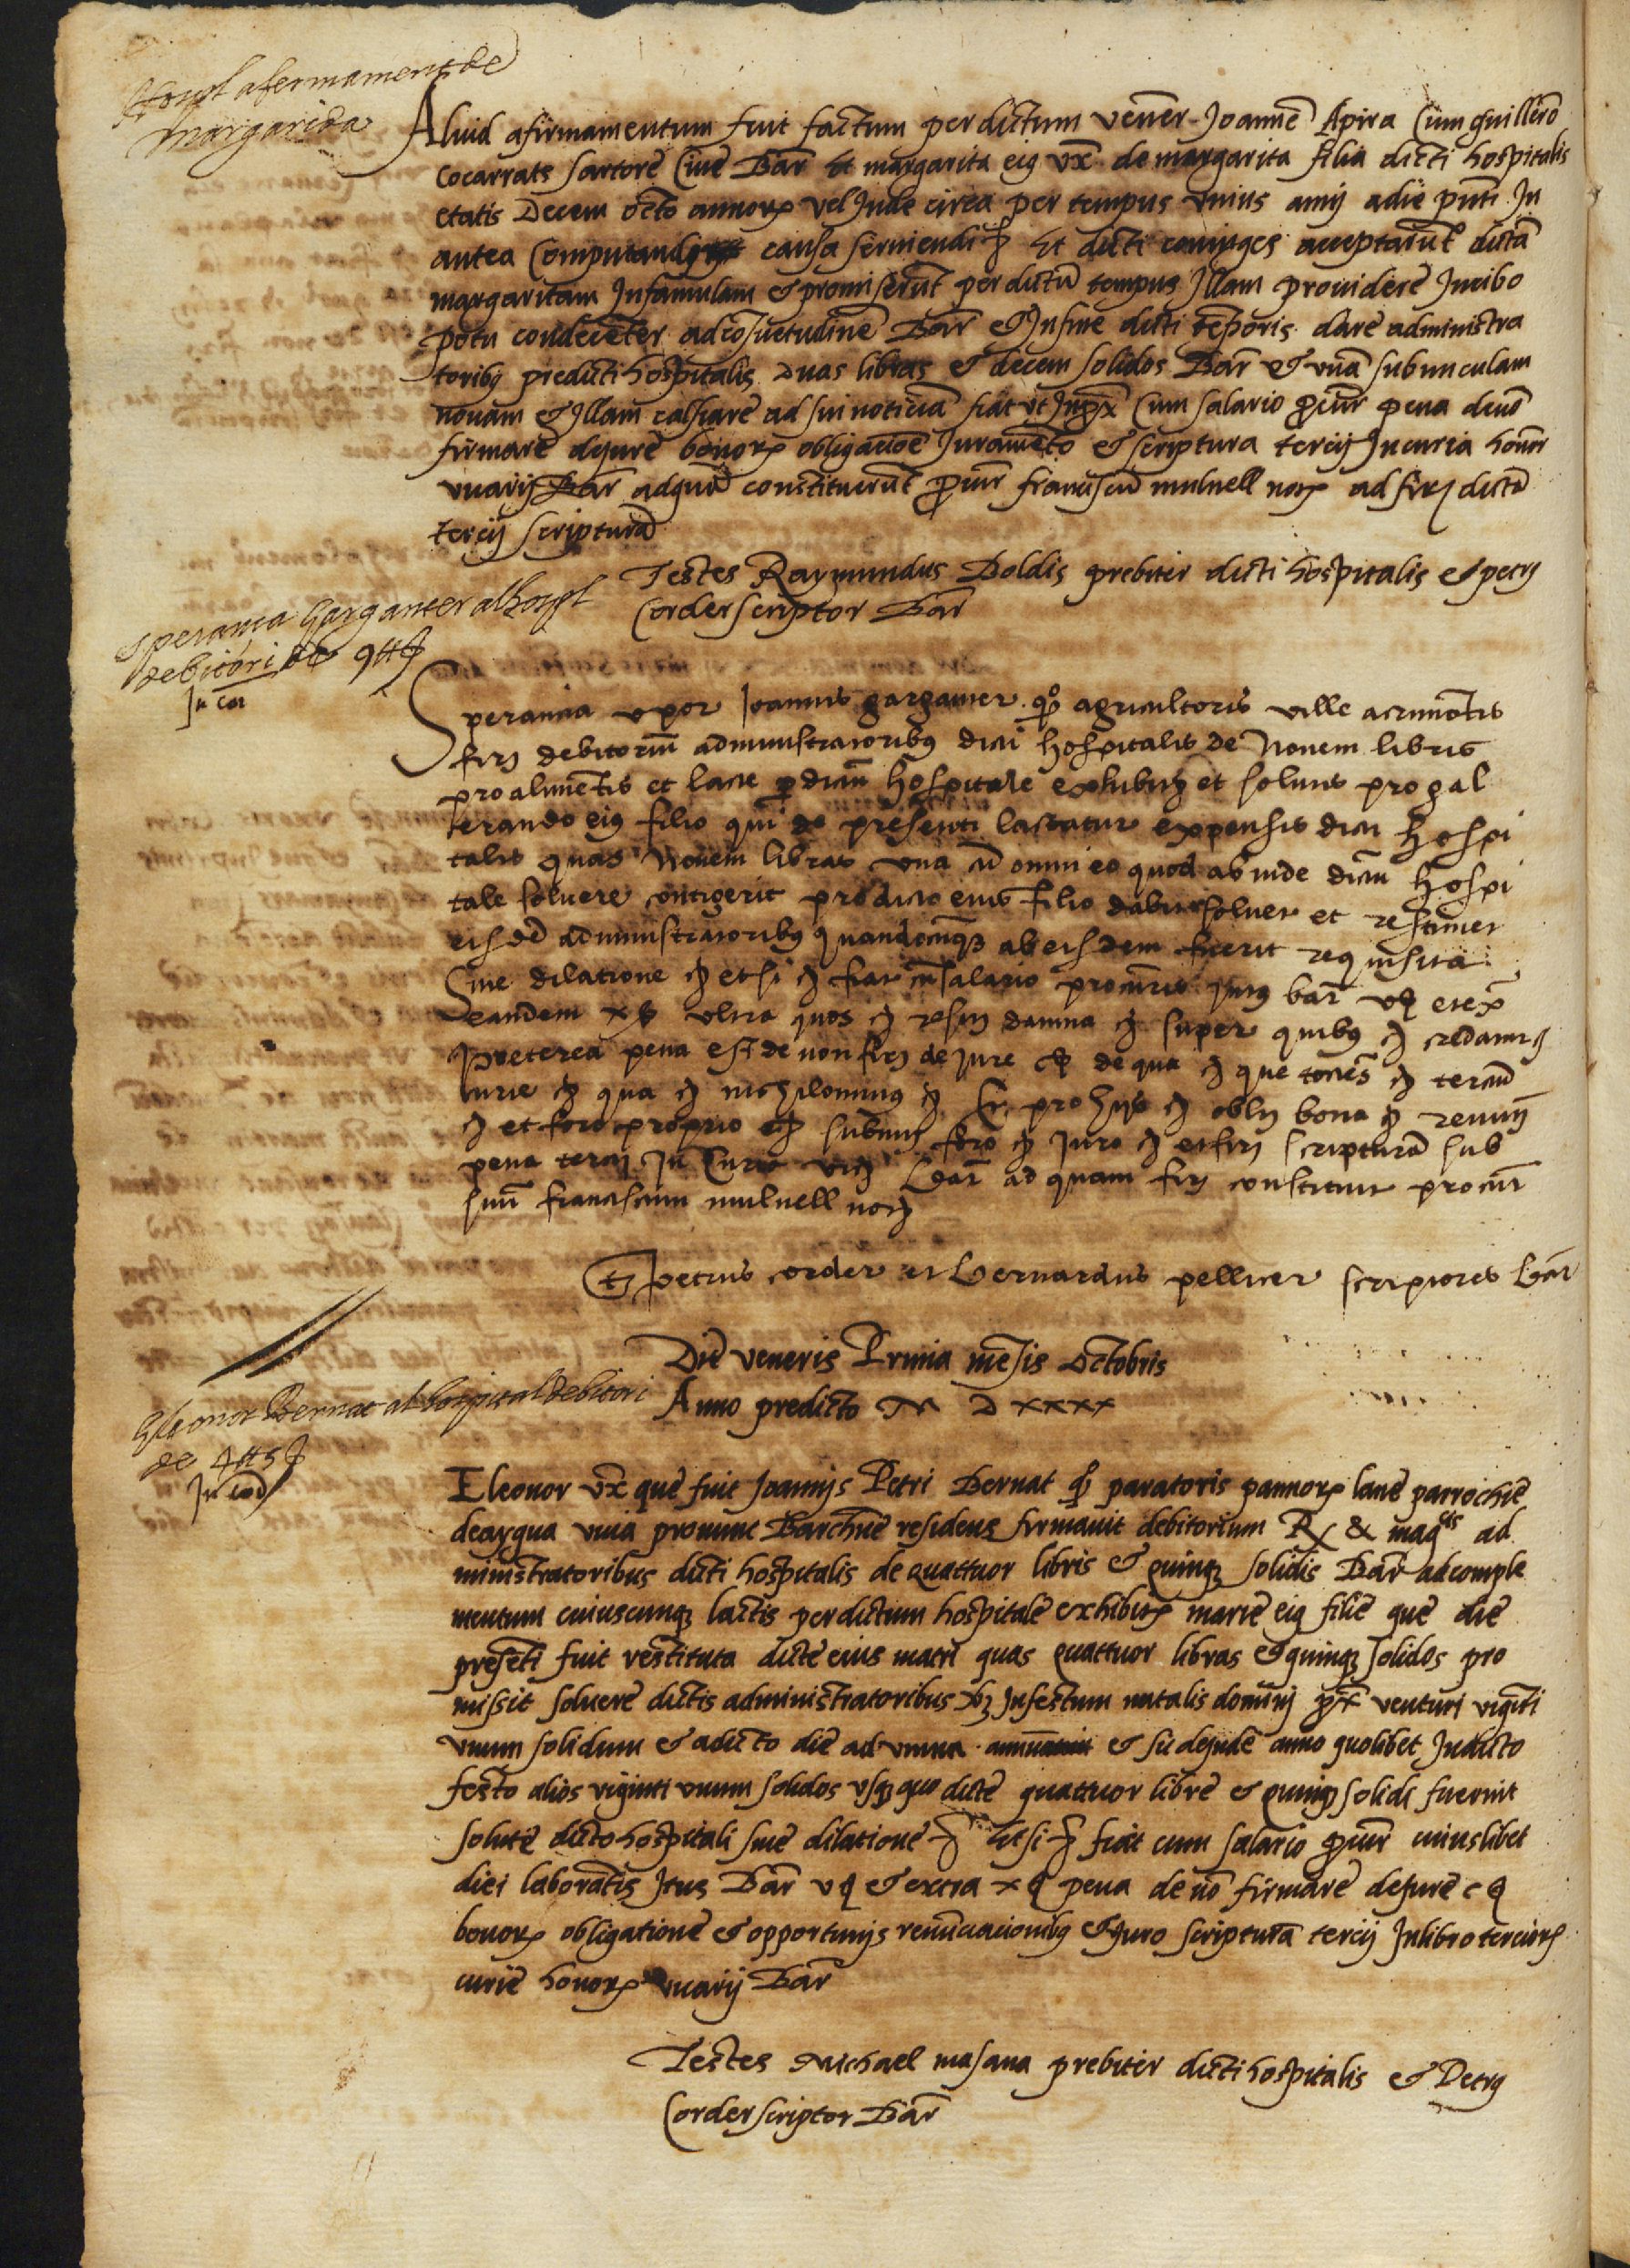 Hospl afermament de
Margarida
Aliud afirmamentum fuit factum per dictum vener Joannē Apira Cum guillermo
Cocarrats sartorē Ciuē Bar̄ Et margarita eiꝰ vx̄ de margarita filia dicti hospitalis
etatis Decem octo annorꝝ vel Inde circa per tempus vnius anij adie pn̄ti In
antea Computandi causa seruiendi ꝫ Et dicti coniuges acceptarūt dictā
margaritam Infamulam & promiserūt per dictū tempus Illam prouiderē Incibo
potu condecēter adcōsuetudinē Bar̄ & Infine dicti tēporis darē administra
toribꝰ predicti hospitalis Duas libras & decem solidos Bar̄ & vnā subunculam
nouam & Illam calsiarē ad sui noticiā fiat vt In px̄ Cum salario ꝓcur̄ pena
firmarē dejurē bonorꝝ obligacioē Juramēto & scriptura tercij Incuria honor
vicarij Bar̄ adquā constituerūt ꝓcur̄ franciscū mulnell norꝫ ad firꝫ dictā
tercij scripturā
Testes Raymundus Doldis prebiter dicti hospitalis & petrꝰ
Corder scriptor Bar̄
Speransa Garganter al hospl
debitori de 9 ₶
In cor
Sperancia vxor Joannis garganter qº agricultoris ville acrimōtis
firꝫ debitoriū administratoribꝰ dicti hospitalis de Nouem libris
pro alimētis et lacte ꝑ dictū hospitale exhibitꝫ et solutis pro gal
terando eiꝰ filio qui de presenti lactatur expensis dicti hospi
talis quas Nouem libras vna cū omni eo quod ab inde dictū hospi
tale soluere cōtigerit pro dicto eius filio dabit soluet et restituet
eisdē administratoribꝰ quandocūqꝫ ab eisdem fuerit requisita
Sine dilatione ꝫ et si ꝫ fiat cū salario procuris intꝰ bar̄ vꝗ et ex̄
eandem xꝗ vltra quos ꝫ restꝫ damna ꝫ super quibꝰ ꝫ credatur ꝫ
preterea pena est de non firꝫ de jure cꝗ de qua ꝫ que tociēs ꝫ terciū
curie ꝫ qua ꝫ nichilominꝰ ꝫ Et pro hijs ꝫ oblꝫ bona ꝫ renuꝫ
ꝫ et foro proprio ꝫ submꝫ foro ꝫ Juro ꝫ et firꝫ scripturā sub
pena tercij In Curia vicꝫ bar̄ ad quam firꝫ constituit procur̄
suū franciscum mulnell norꝫ
tꝫ petrus corder et bernardus pellicer scriptores bar̄
Diē veneris Prima mēsis octobris
Anno predicto M D xxxx
Eleonor Bernat al hospital debitori
de 4 ₶ 5 ꝭ
In cod
Eleonor vx̄ que fuit Joannis Petri Bernat qº paratoris pannorꝝ lanē parrochiē
deaygua viua pronunc Barchn̄e residens firmauit debitorium Rꝫ & magcis ad
ministratoribus dicti hospitalis de quattuor libris & quinqꝫ solidis Bar̄ adcomple
mentum cuiuscunqꝫ lactis per dictum hospitalē exhibitꝫ mariē eiꝰ filiē que diē
presēti fuit restituta dictē eius matri quas quattuor libras & quinqꝫ solidos pro
missit soluerē dictis administratoribus hꝫ Infestum natalis domini px̄ venturi viginti
vnum solidum & adicto diē ad vnum annum & sic deindē anno quolibet Indicto
festo alios viginti vnum solidos vsqꝫ quo dictē quattuor librē & quinqꝫ solidi fuerint
solutē dicto hospitali sinē dilationē ꝫ Et si ꝫ fiat cum salario ꝓcur̄ cuiuslibet
diei laborātis Intus Bar̄ vꝗ & extra xꝗ pena de nō firmarē dejurē cꝗ
bonorꝝ obligationē & opportunis renūciacionibꝰ & Juro scripturā tercij Inlibro terciorꝝ
curiē honorꝝ vicarij Bar̄
Testes Michael masana prebiter dicti hospitalis & Petrꝰ
Corder scriptor Bar̄